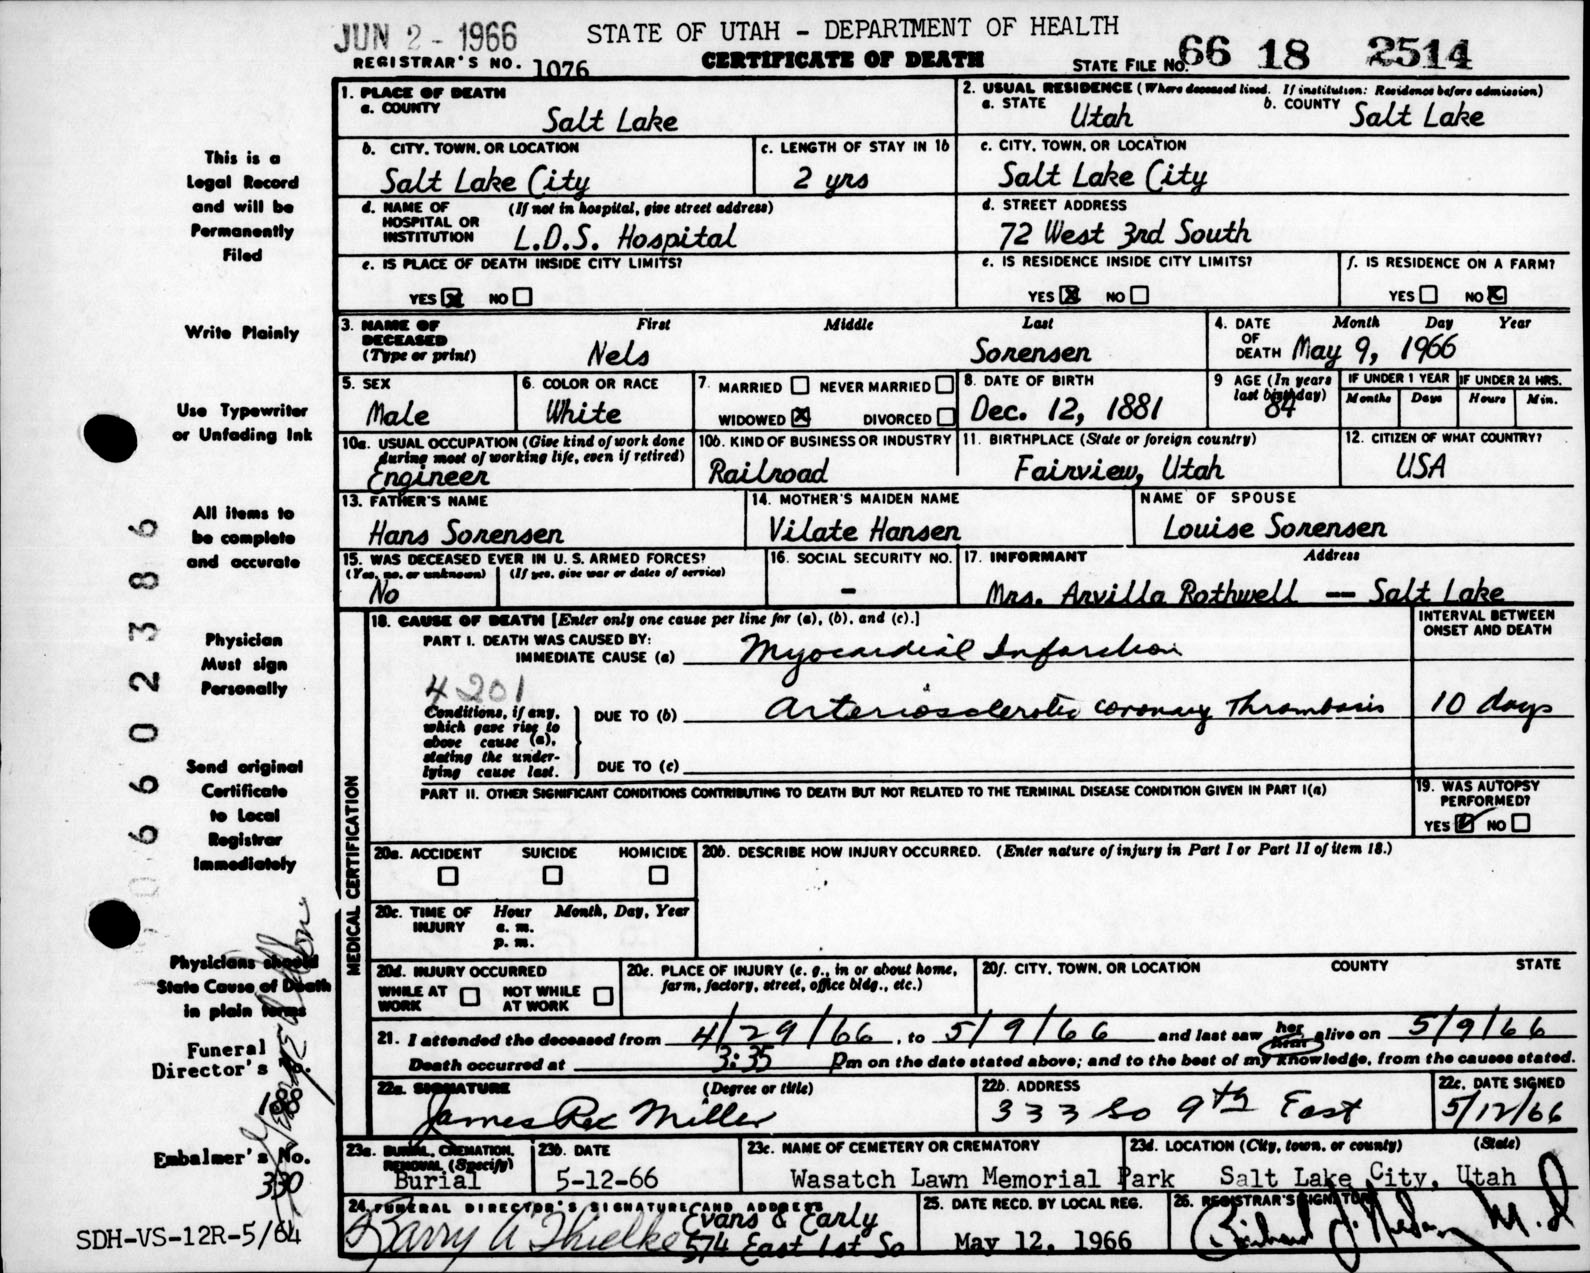 JUN 2 - 1966
STATE OF UTAH - DEPARTMENT OF HEALTH
REGISTRAR'S NO. 1076
CERTIFICATE OF DEATH
STATE FILE NO. 66 18 2514
This is a
Legal Record
and will be
Permanently
Filed
Write Plainly
Use Typewriter
or Unfading Ink
All items to
be complete
and accurate
Physician
Must sign
Personally
Send original
Certificate
to Local
Registrar
Immediately
Physicians should
State Cause of Death
in plain terms
Funeral
Director's
Embalmer's No.
330
SDH-VS-12R-5/64
06602386
1. PLACE OF DEATH
a. COUNTY
Salt Lake
2. USUAL RESIDENCE (Where deceased lived. If institution: Residence before admission)
a. STATE Utah b. COUNTY Salt Lake
b. CITY, TOWN, OR LOCATION
Salt Lake City
c. LENGTH OF STAY IN 1b
2 yrs
c. CITY, TOWN, OR LOCATION
Salt Lake City
d. NAME OF HOSPITAL OR INSTITUTION (If not in hospital, give street address)
L.D.S. Hospital
d. STREET ADDRESS
72 West 3rd South
e. IS PLACE OF DEATH INSIDE CITY LIMITS?
YES X NO
e. IS RESIDENCE INSIDE CITY LIMITS?
YES X NO
f. IS RESIDENCE ON A FARM?
YES NO X
3. NAME OF DECEASED (Type or print)
First Middle Last
Nels Sorensen
4. DATE OF DEATH Month Day Year
May 9, 1966
5. SEX
Male
6. COLOR OR RACE
White
7. MARRIED NEVER MARRIED
WIDOWED X DIVORCED
8. DATE OF BIRTH
Dec. 12, 1881
9 AGE (In years last birthday)
84
IF UNDER 1 YEAR IF UNDER 24 HRS.
Months Days Hours Min.
10a. USUAL OCCUPATION (Give kind of work done during most of working life, even if retired)
Engineer
10b. KIND OF BUSINESS OR INDUSTRY
Railroad
11. BIRTHPLACE (State or foreign country)
Fairview, Utah
12. CITIZEN OF WHAT COUNTRY?
USA
13. FATHER'S NAME
Hans Sorensen
14. MOTHER'S MAIDEN NAME
Vilate Hansen
NAME OF SPOUSE
Louise Sorensen
15. WAS DECEASED EVER IN U. S. ARMED FORCES?
(Yes, no, or unknown) (If yes, give war or dates of service)
No
16. SOCIAL SECURITY NO.
-
17. INFORMANT Address
Mrs. Arvilla Rothwell — Salt Lake
MEDICAL CERTIFICATION
18. CAUSE OF DEATH [Enter only one cause per line for (a), (b), and (c).]
PART I. DEATH WAS CAUSED BY:
IMMEDIATE CAUSE (a) Myocardial Infarction
INTERVAL BETWEEN ONSET AND DEATH
4201
Conditions, if any, which gave rise to above cause (a), stating the underlying cause last.
DUE TO (b) Arteriosclerotic coronary Thrombosis 10 days
DUE TO (c)
PART II. OTHER SIGNIFICANT CONDITIONS CONTRIBUTING TO DEATH BUT NOT RELATED TO THE TERMINAL DISEASE CONDITION GIVEN IN PART I(a)
19. WAS AUTOPSY PERFORMED?
YES ✓ NO
20a. ACCIDENT SUICIDE HOMICIDE
20b. DESCRIBE HOW INJURY OCCURRED. (Enter nature of injury in Part I or Part II of item 18.)
20c. TIME OF INJURY Hour Month, Day, Year
a. m.
p. m.
20d. INJURY OCCURRED
WHILE AT WORK NOT WHILE AT WORK
20e. PLACE OF INJURY (e. g., in or about home, farm, factory, street, office bldg., etc.)
20f. CITY, TOWN, OR LOCATION COUNTY STATE
21. I attended the deceased from 4/29/66, to 5/9/66 and last saw her him alive on 5/9/66
Death occurred at 3:35 Pm on the date stated above; and to the best of my knowledge, from the causes stated.
22a. SIGNATURE (Degree or title)
James Rex Miller
22b. ADDRESS
333 So 9th East
22c. DATE SIGNED
5/12/66
23a. BURIAL, CREMATION, REMOVAL (Specify)
Burial
23b. DATE
5-12-66
23c. NAME OF CEMETERY OR CREMATORY
Wasatch Lawn Memorial Park
23d. LOCATION (City, town, or county) (State)
Salt Lake City, Utah
24. FUNERAL DIRECTOR'S SIGNATURE AND ADDRESS
Barry A Thielke Evans & Early
574 East 1st So
25. DATE RECD. BY LOCAL REG.
May 12, 1966
26. REGISTRAR'S SIGNATURE
M.D